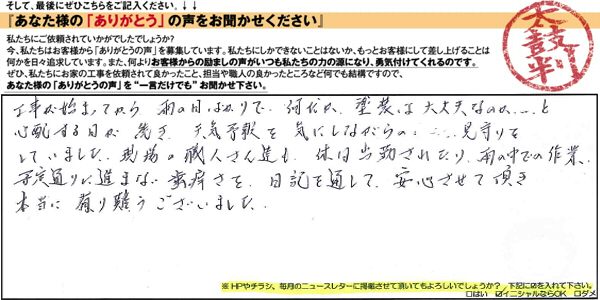 そして、最後にぜひこちらをご記入ください。↓↓
『あなた様の「ありがとう」の声をお聞かせください』
私たちにご依頼されていかがでしたでしょうか?
今、私たちはお客様から「ありがとうの声」を募集しています。私たちにしかできないことはないか、もっとお客様にして差し上げることは
何かを日々追求しています。また、何よりお客様からの励ましの声がいつも私たちの力の源になり、勇気付けてくれるのです。
ぜひ、私たちにお家の工事を依頼されて良かったこと、担当や職人の良かったところなど何でも結構ですので、
あなた様の「ありがとうの声」を“一言だけでも”お聞かせ下さい。
太鼓判
工事が始まってから 雨の日ばかりで、何だか、塗装は大丈夫なのか……と
心配する日が続き、天気予報を気にしながらの……見守りを
していました。現場の職人さん達も、休日出勤されたり、雨の中での作業、
予定通りに進まない歯痒さを、日記を通して、安心させて頂き
本当に有り難うございました。
※HPやチラシ、毎月のニュースレターに掲載させて頂いてもよろしいでしょうか? 下記に☑を入れて下さい。
□はい ☑イニシャルならOK □ダメ